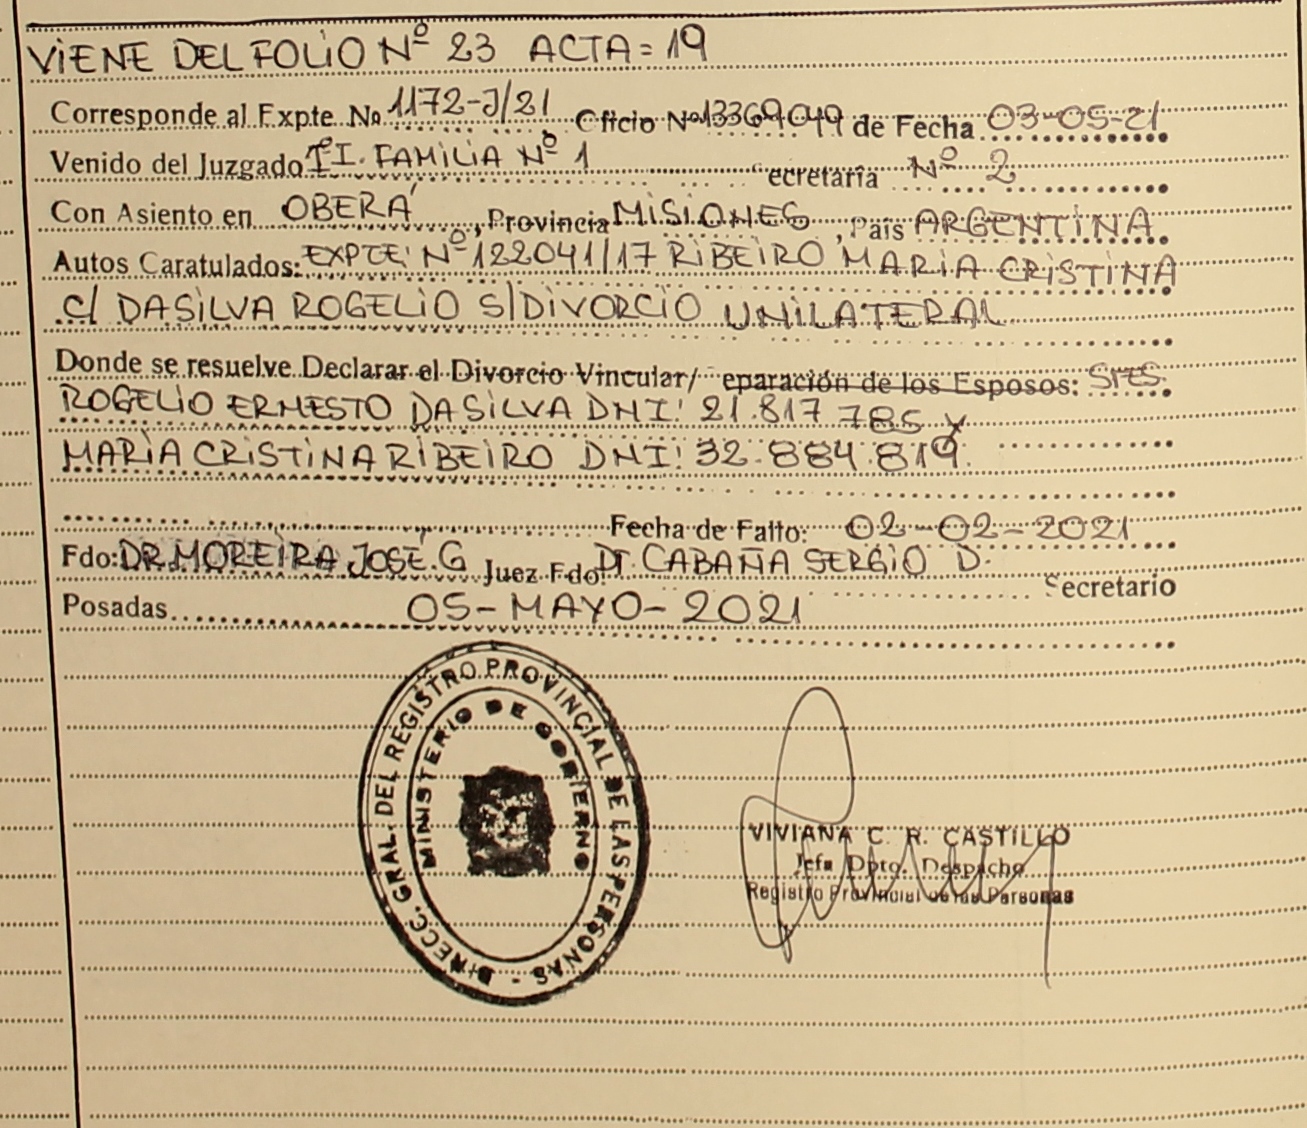 VIENE DEL FOLIO Nº 23 ACTA = 19
Corresponde al Expte. Nº 1172-J/21 Oficio Nº 13369049 de Fecha 03-05-21
Venido del Juzgado I. FAMILIA Nº 1 ecretaría Nº 2
Con Asiento en OBERÁ, Provincia MISIONES, País ARGENTINA.
Autos Caratulados: EXPTE: Nº 122041/17 RIBEIRO MARIA CRISTINA
C/ DASILVA ROGELIO S/DIVORCIO UNILATERAL
Donde se resuelve Declarar el Divorcio Vincular/ eparación de los Esposos: SRES.
ROGELIO ERNESTO DASILVA DNI: 21.817.785 y
MARIA CRISTINA RIBEIRO DNI: 32.884.819.
Fecha de Fallo: 02-02-2021
Fdo: DR. MOREIRA JOSÉ. G Juez Fdo: CABAÑA SERGIO D. Secretario
Posadas 05-MAYO-2021
DIRECC. GRAL. DEL REGISTRO PROVINCIAL DE LAS PERSONAS -
MINISTERIO DE GOBIERNO
VIVIANA C. R. CASTILLO
Jefa Dpto. Despacho
Registro Provincial de las Personas